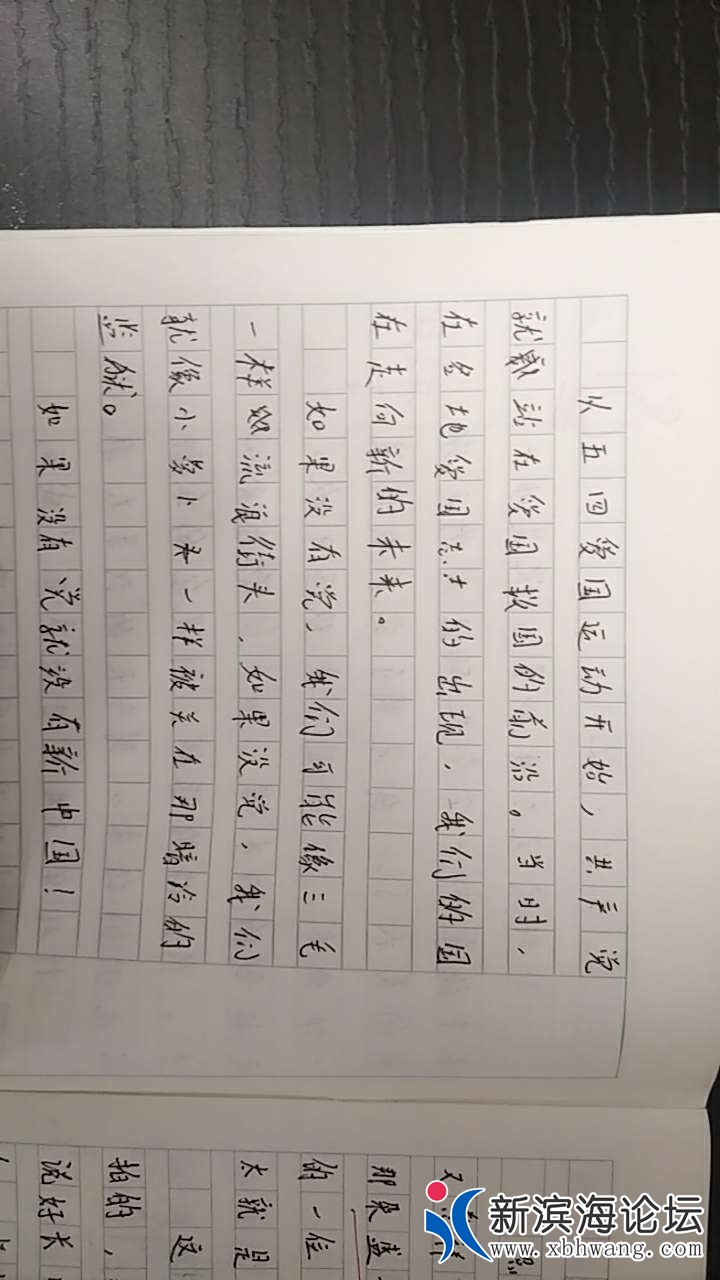 从五四爱国运动开始，共产党
就站在爱国救国的前沿。当时，
在各地爱国志士的出现，我们的国
在走向新的未来。
如果没有党，我们可能像三毛
一样流浪街头，如果没党，我们
就像小萝卜头一样被关在那暗冷的
监狱。
如果没有党就没有新中国！
照
又
那来盛
的一位
太就是
这
拍的，
说好长
新滨海论坛
www.xbhwang.com